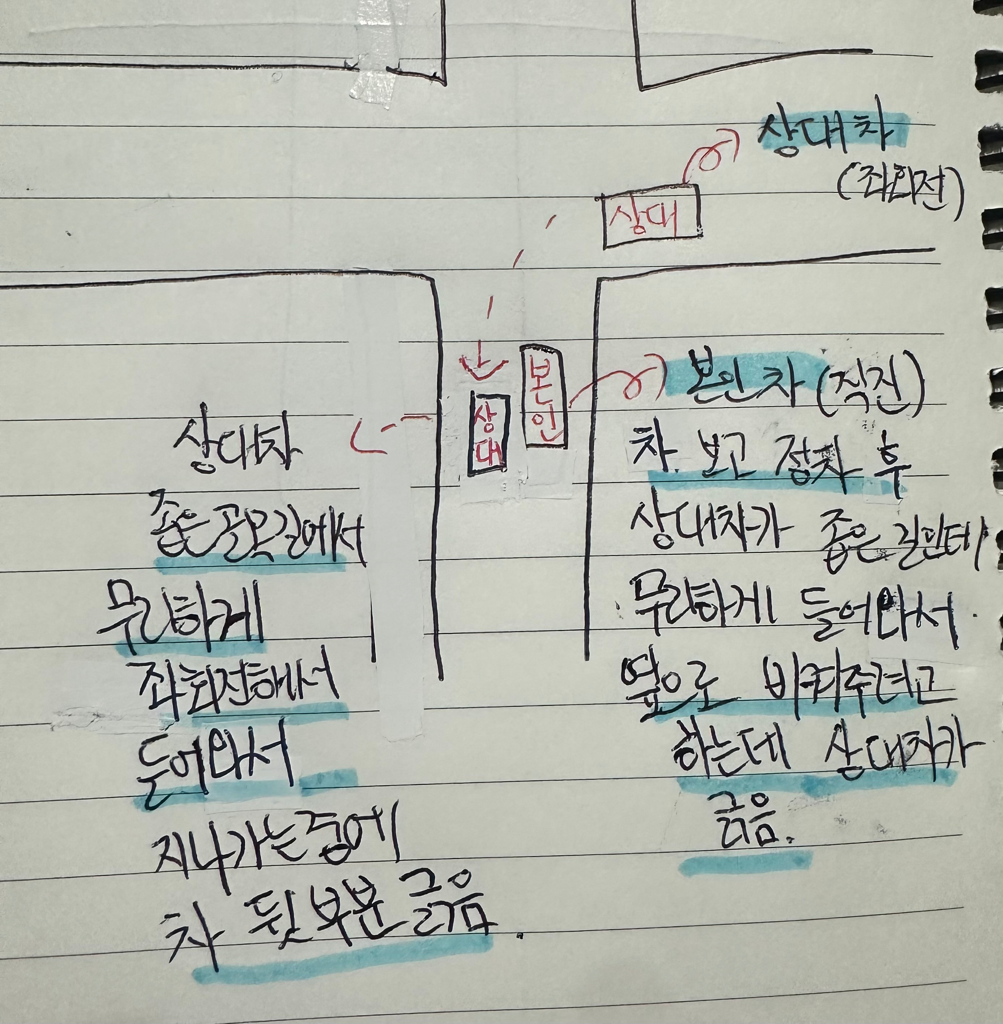 상대차
(좌회전)
상대
본인
상대
본인차 (직진)
차 보고 정차 후
상대차가 좁은 길인데
무리하게 들어와서
옆으로 비켜주려고
하는데 상대차가
긁음.
상대차
좁은 골목길에서
무리하게
좌회전해서
들어와서
지나가는 중에
차 뒷부분 긁음.